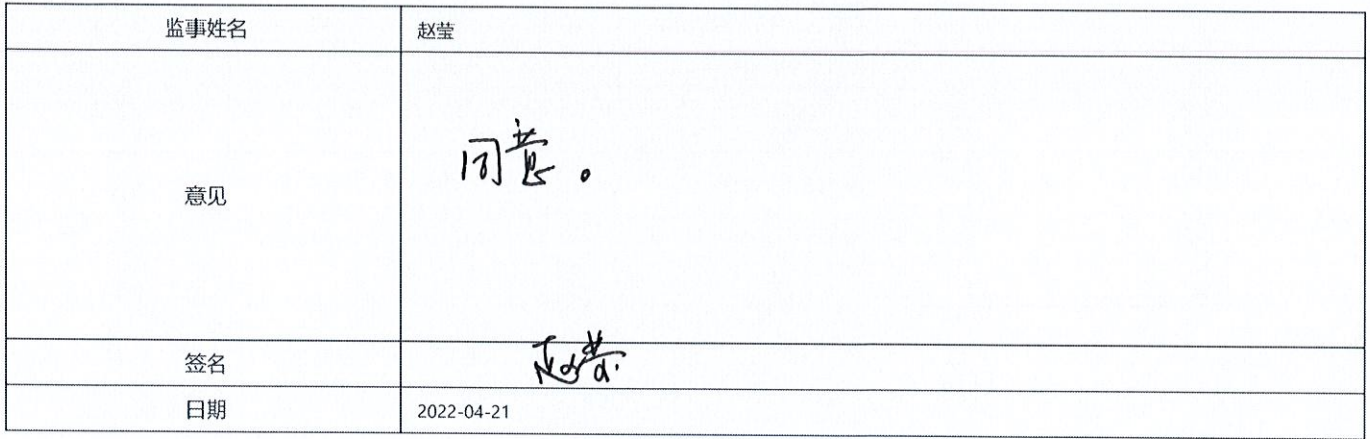 监事姓名 赵莹
意见 同意。
签名 赵莹
日期 2022-04-21